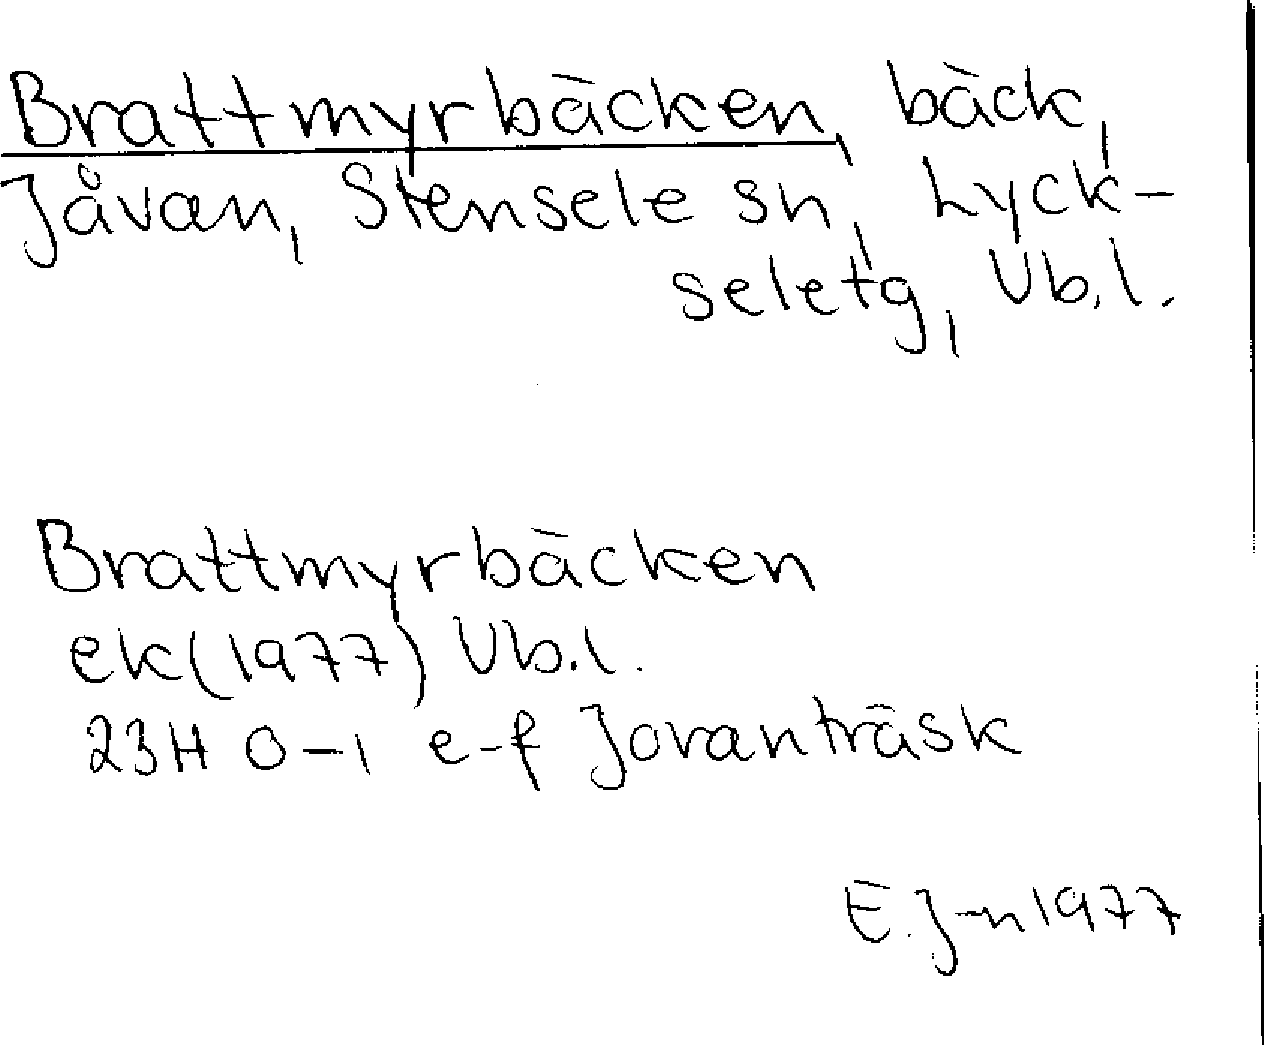 Brattmyrbäcken, bäck,
Jåvan, Stensele sn, Lyck-
seletg, Vb.l.
Brattmyrbäcken
ek(1977) Vb.l.
23H 0-1 e-f Jovanträsk
E.J-n 1977